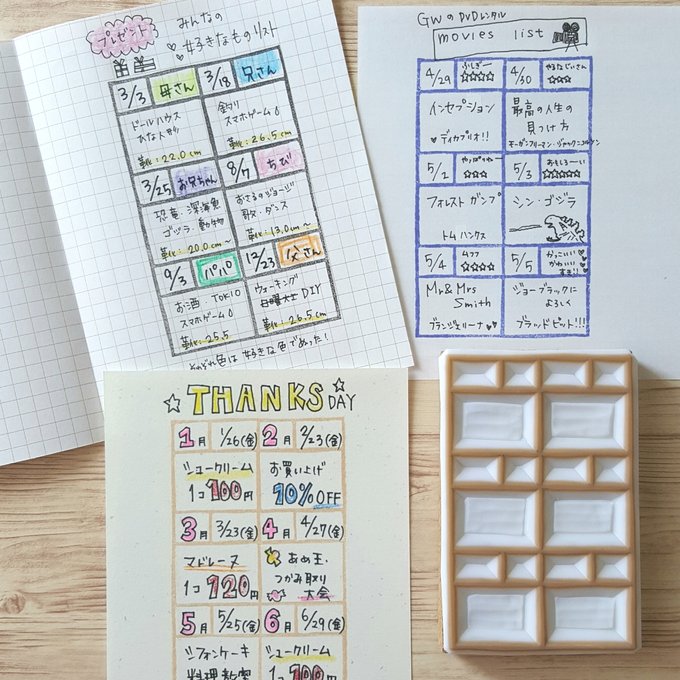 プレゼント
みんなの
好きなものリスト
3/3 母さん
ドールハウス
ひな人形
靴:22.0cm
3/18 兄さん
釣り
スマホゲーム
靴:26.5cm
3/25 お兄ちゃん
恐竜・深海魚
ゴジラ・動物
靴:20.0cm~
8/7 ちび
おさるのジョージ
歌・ダンス
靴:13.0cm~
9/3 パパ
お酒・TOKIO
スマホゲーム
靴:25.5
12/23 父さん
ウォーキング
日曜大工 DIY
靴:26.5cm
それぞれ色は好きな色でぬった!
GWのDVDレンタル
movies list
4/29 ふしぎー
☆☆☆☆
インセプション
♥ディカプリオ!!
4/30 やるなじいさん
☆☆☆
最高の人生の
見つけ方
モーガンフリーマン・ジャックニコルソン
5/2 やっぱりいい
☆☆☆☆
フォレスト ガンプ
トムハンクス
5/3 おもしろーい
☆☆☆☆☆
シン・ゴジラ
5/4
☆☆☆☆
Mr&Mrs
Smith
ブランジェリーナ♥♥
5/5 かっこいい
かわいい
ジョーブラックに
よろしく
ブラッドピット!!!
☆THANKS DAY☆
1月 1/26(金)
シュークリーム
1コ100円
2月 2/23(金)
お買い上げ
10%OFF
3月 3/23(金)
マドレーヌ
1コ120円
4月 4/27(金)
あめ玉
つかみ取り
大会
5月 5/25(金)
シフォンケーキ
料理教室
6月 6/29(金)
シュークリーム
1コ100円